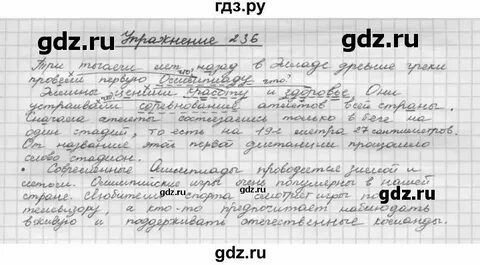 гдз.ру
Упражнение 236
Три тысячи лет назад в Элладе древние греки
провели первую Олимпиаду
что?
Эллины ценили красоту и здоровье. Они
устраивали соревнование атлетов всей страны.
Сначала атлеты состязались только в беге на
один стадий, то есть на 192 метра 27 сантиметров.
От названия этой первой дистанции произошло
слово стадион.
• Современные Олимпиады проводятся зимой и
летом. Олимпийские игры очень популярны в нашей
стране. Любители спорта смотрят игры по
телевизору, а кто-то предпочитает наблюдать
вживую и поддерживать отечественные команды.
gdz.ru
gdz.ru
gdz.ru
gdz.ru
gdz.ru
gdz.ru